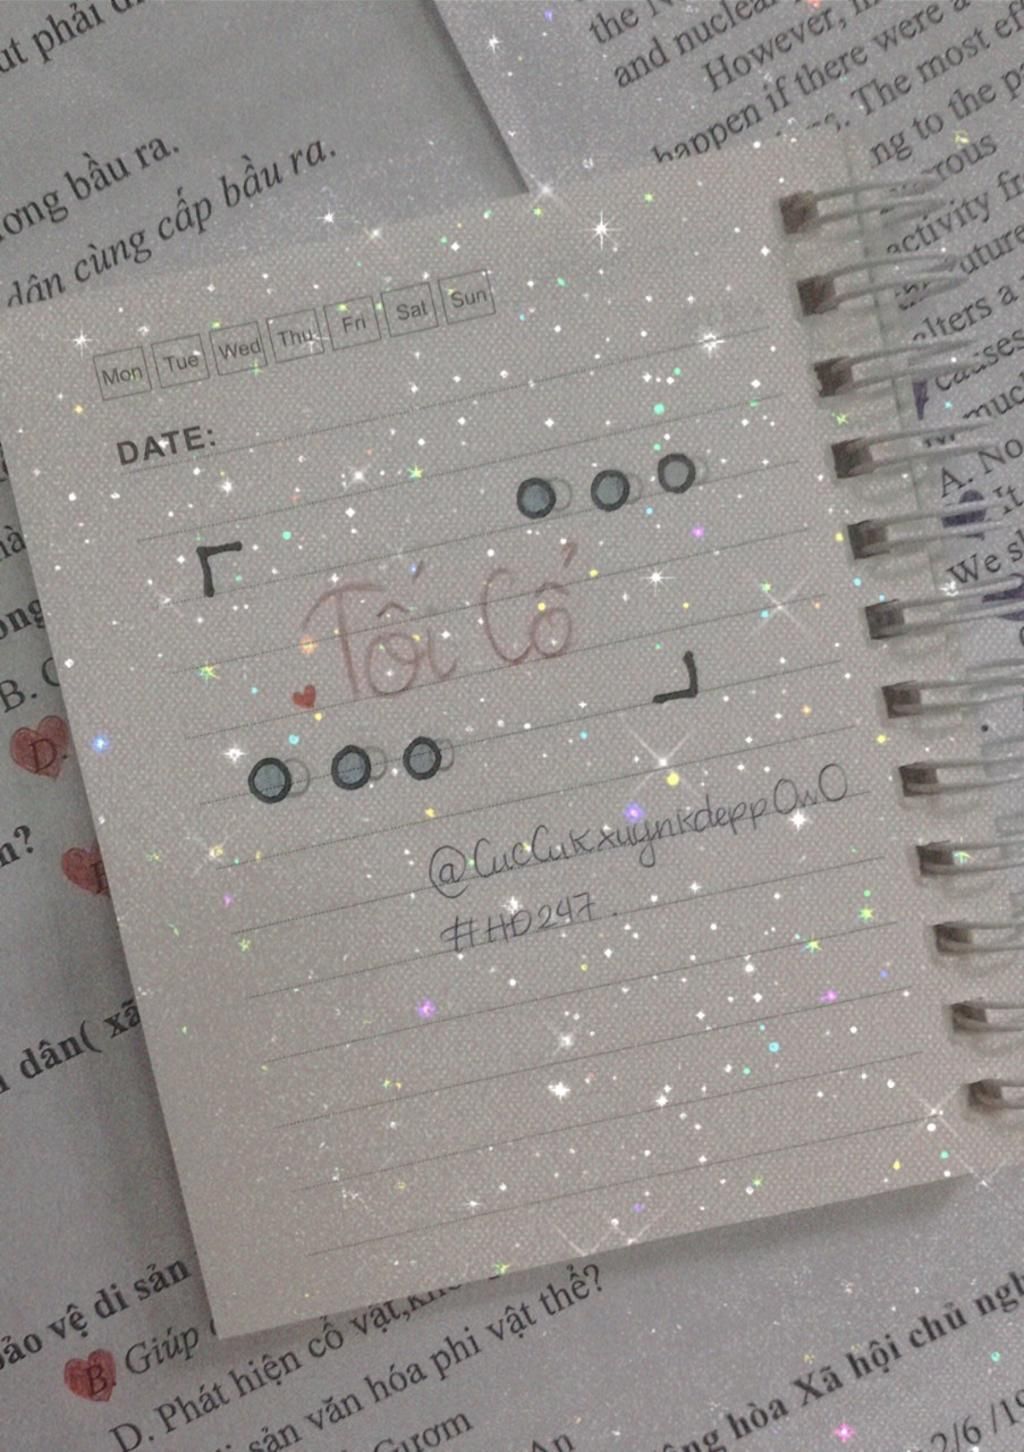 ut phải
ơng bầu ra.
dân cùng cấp bầu ra.
the
and nuclear
However,
happen if there were a
The most
ng to the
activity
alters a
causes
much
A. No
It
We
Mon Tue Wed Thu Fri Sat Sun
DATE:
Tối Cổ
@CucCukxuynkdeppOwO
#HD247.
B.
D.
dân( xã
bảo vệ di sản
B. Giúp
D. Phát hiện cổ vật,
sản văn hóa phi vật thể?
Gươm
hòa Xã hội chủ
2/6 /19